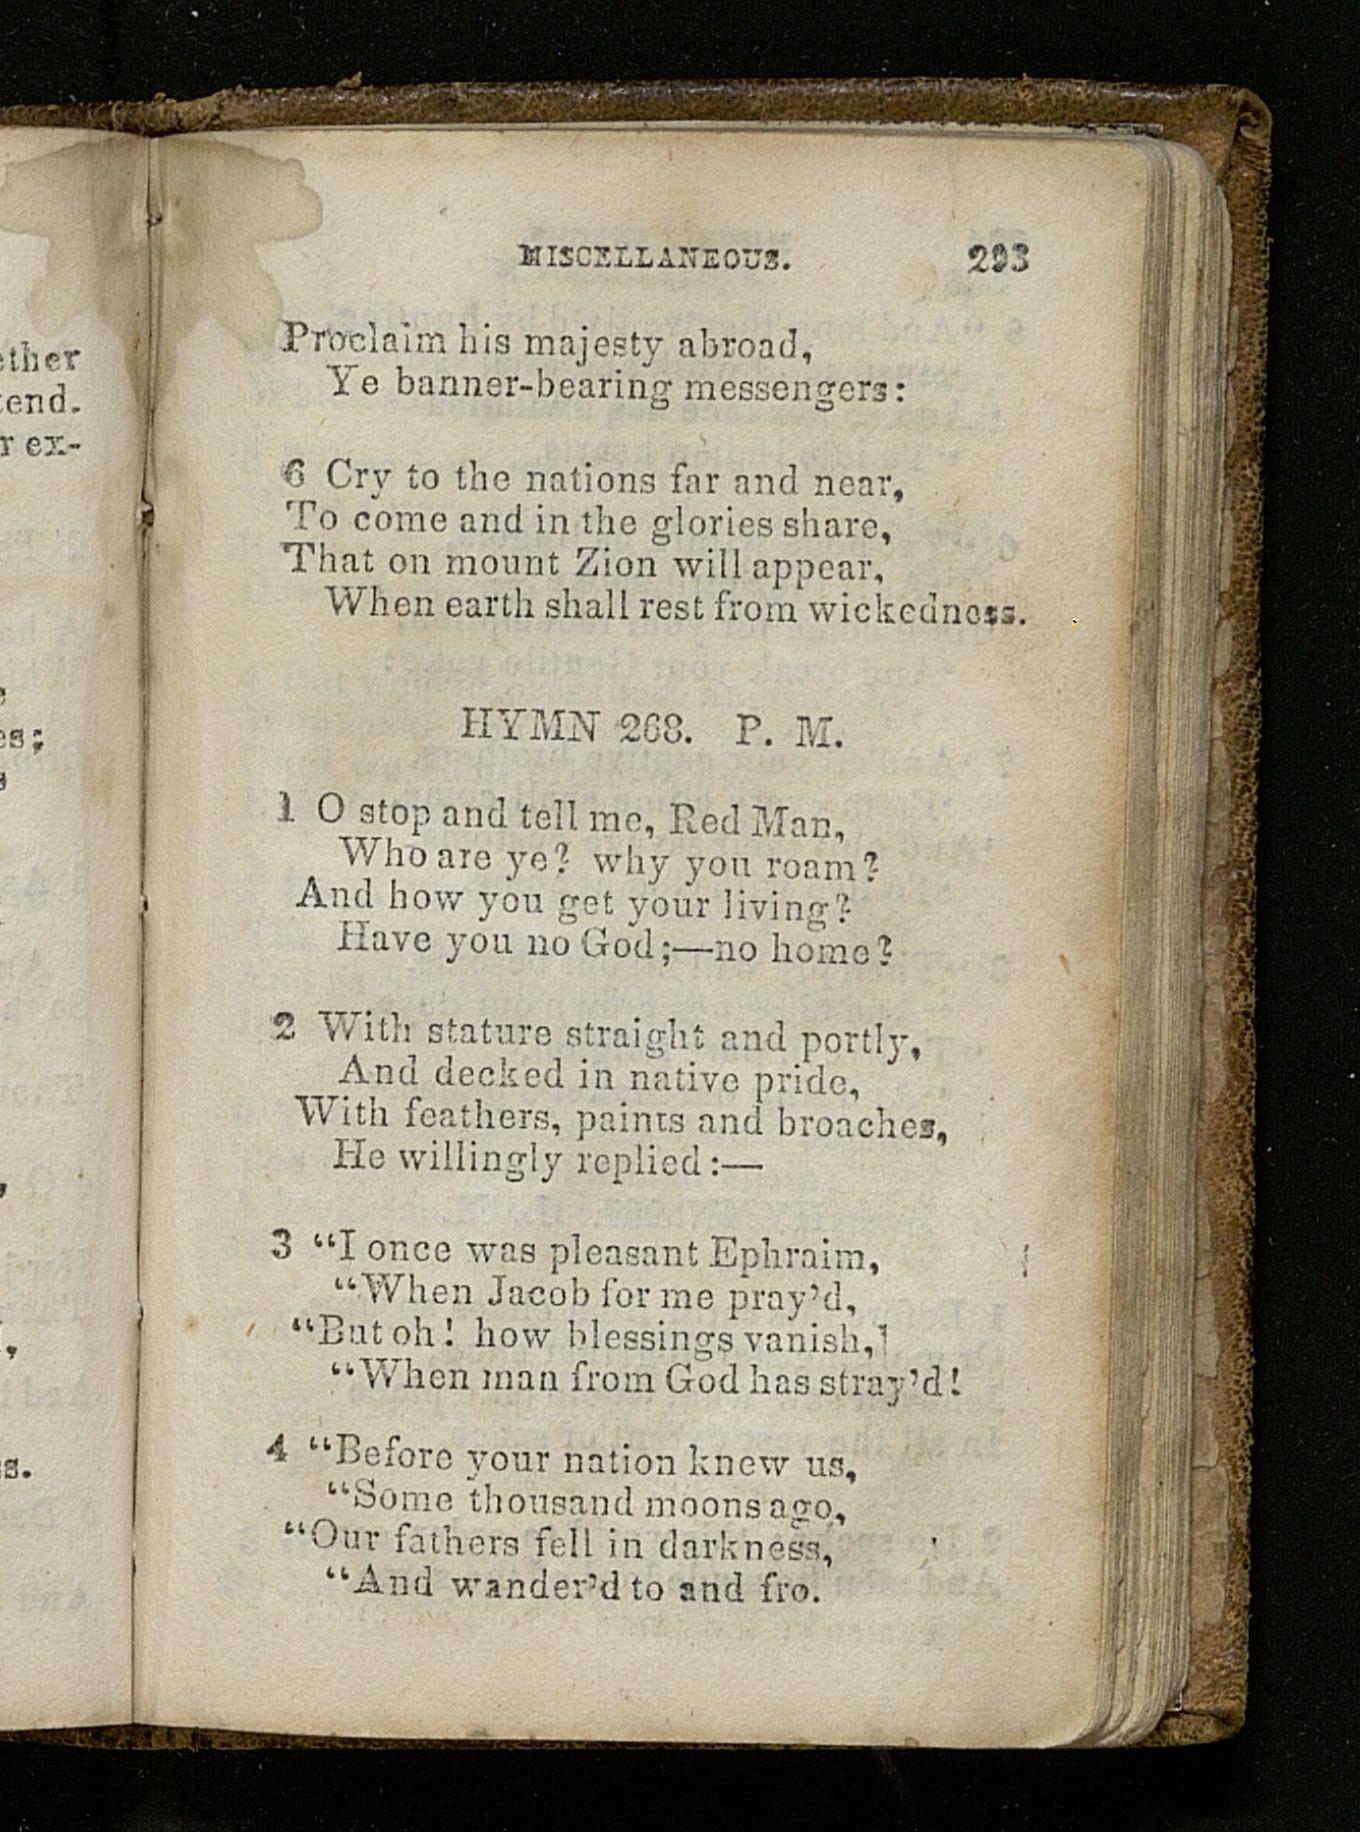 ether
tend.
r ex-
es;
s.
MISCELLANEOUS. 293
Proclaim his majesty abroad,
Ye banner-bearing messengers:
6 Cry to the nations far and near,
To come and in the glories share,
That on mount Zion will appear,
When earth shall rest from wickedness.
HYMN 268. P. M.
1 O stop and tell me, Red Man,
Who are ye? why you roam?
And how you get your living?
Have you no God;—no home?
2 With stature straight and portly,
And decked in native pride,
With feathers, paints and broaches,
He willingly replied:—
3 “I once was pleasant Ephraim,
“When Jacob for me pray’d,
“But oh! how blessings vanish,
“When man from God has stray’d!
4 “Before your nation knew us,
“Some thousand moons ago,
“Our fathers fell in darkness,
“And wander’d to and fro.